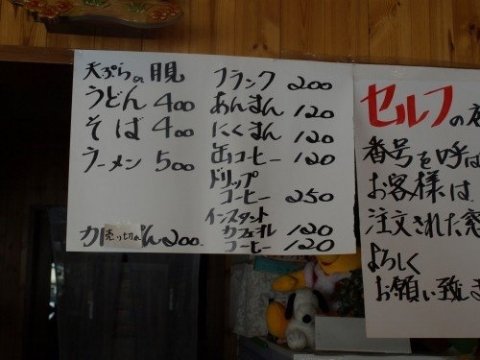 天ぷらの
うどん 400
そば 400
ラーメン 500
売り切れ
200.
フランク 200
あんまん 120
にくまん 120
缶コーヒー 120
ドリップ
コーヒー 250
インスタント
カフェオレ 120
コーヒー 120
セルフの
番号を呼ば
お客様は
注文された窓
よろしく
お願い致しま